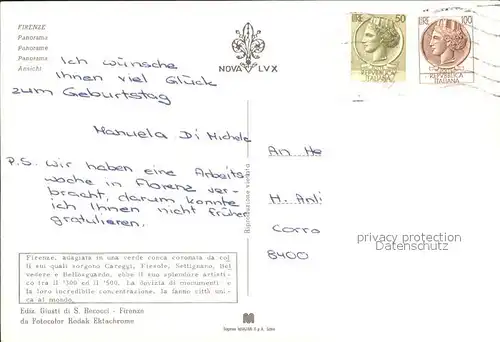 FIRENZE
Panorama
Panorama
Panorama
Ansicht
NOVA LVX
LIRE 50
REPVBBLICA
ITALIANA
LIRE 100
REPVBBLICA
ITALIANA
Ich wünsche
Ihnen viel Glück
zum Geburtstag
Manuela Di Michele
P.S. wir haben eine Arbeits
woche in Florenz ver-
bracht, darum konnte
ich Ihnen nicht früher
gratulieren.
An He
H. Anli
Corro
8400
privacy protection
Datenschutz
Riproduzione vietata
Firenze, adagiata in una verde conca coronata da col
li sui quali sorgono Careggi, Fiesole, Settignano, Bel
vedere e Bellosguardo, ebbe il suo splendore artisti-
co tra il '300 ed il '500. La dovizia di monumenti e
la loro incredibile concentrazione, la fanno città uni-
ca al mondo.
Ediz. Giusti di S. Becocci - Firenze
da Fotocolor Kodak Ektachrome